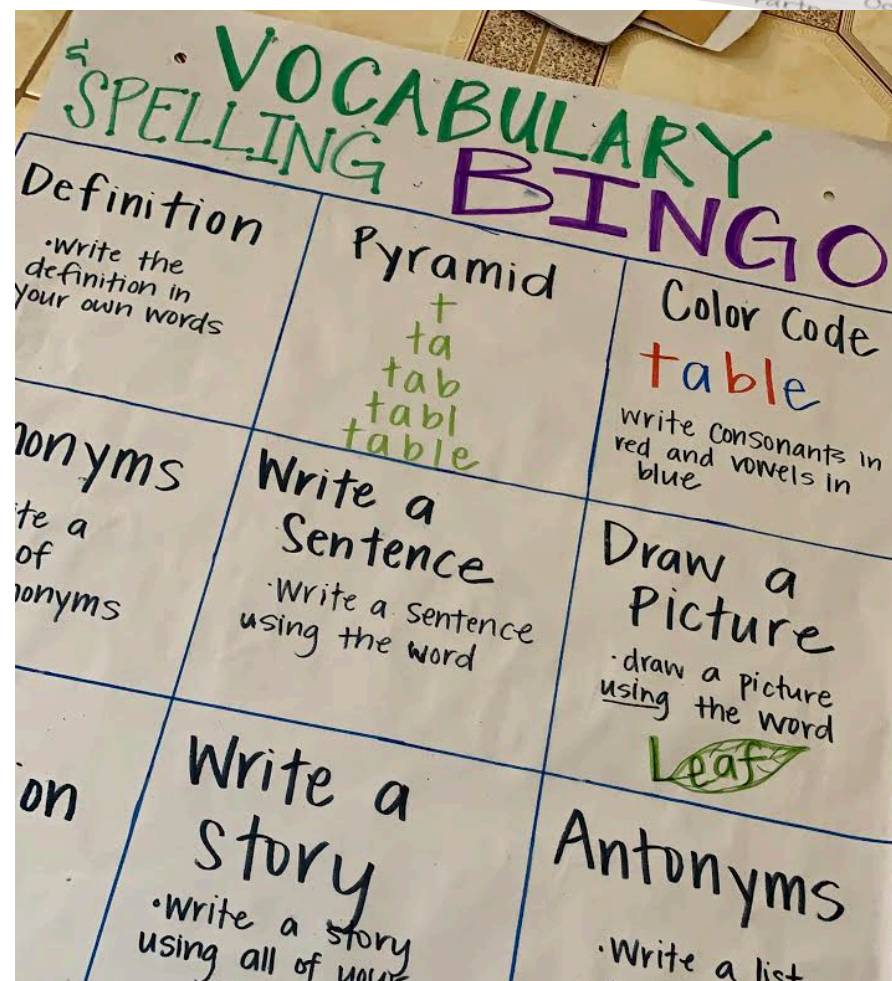 VOCABULARY
& SPELLING BINGO
Definition
·Write the
definition in
your own words
Pyramid
t
ta
tab
tabl
table
Color Code
table
Write consonants in
red and vowels in
blue
nonyms
te a
of
nonyms
Write a
Sentence
·Write a sentence
using the word
Draw a
Picture
·draw a picture
using the word
Leaf
on
Write a
Story
·Write a story
using all of your
Antonyms
·Write a list